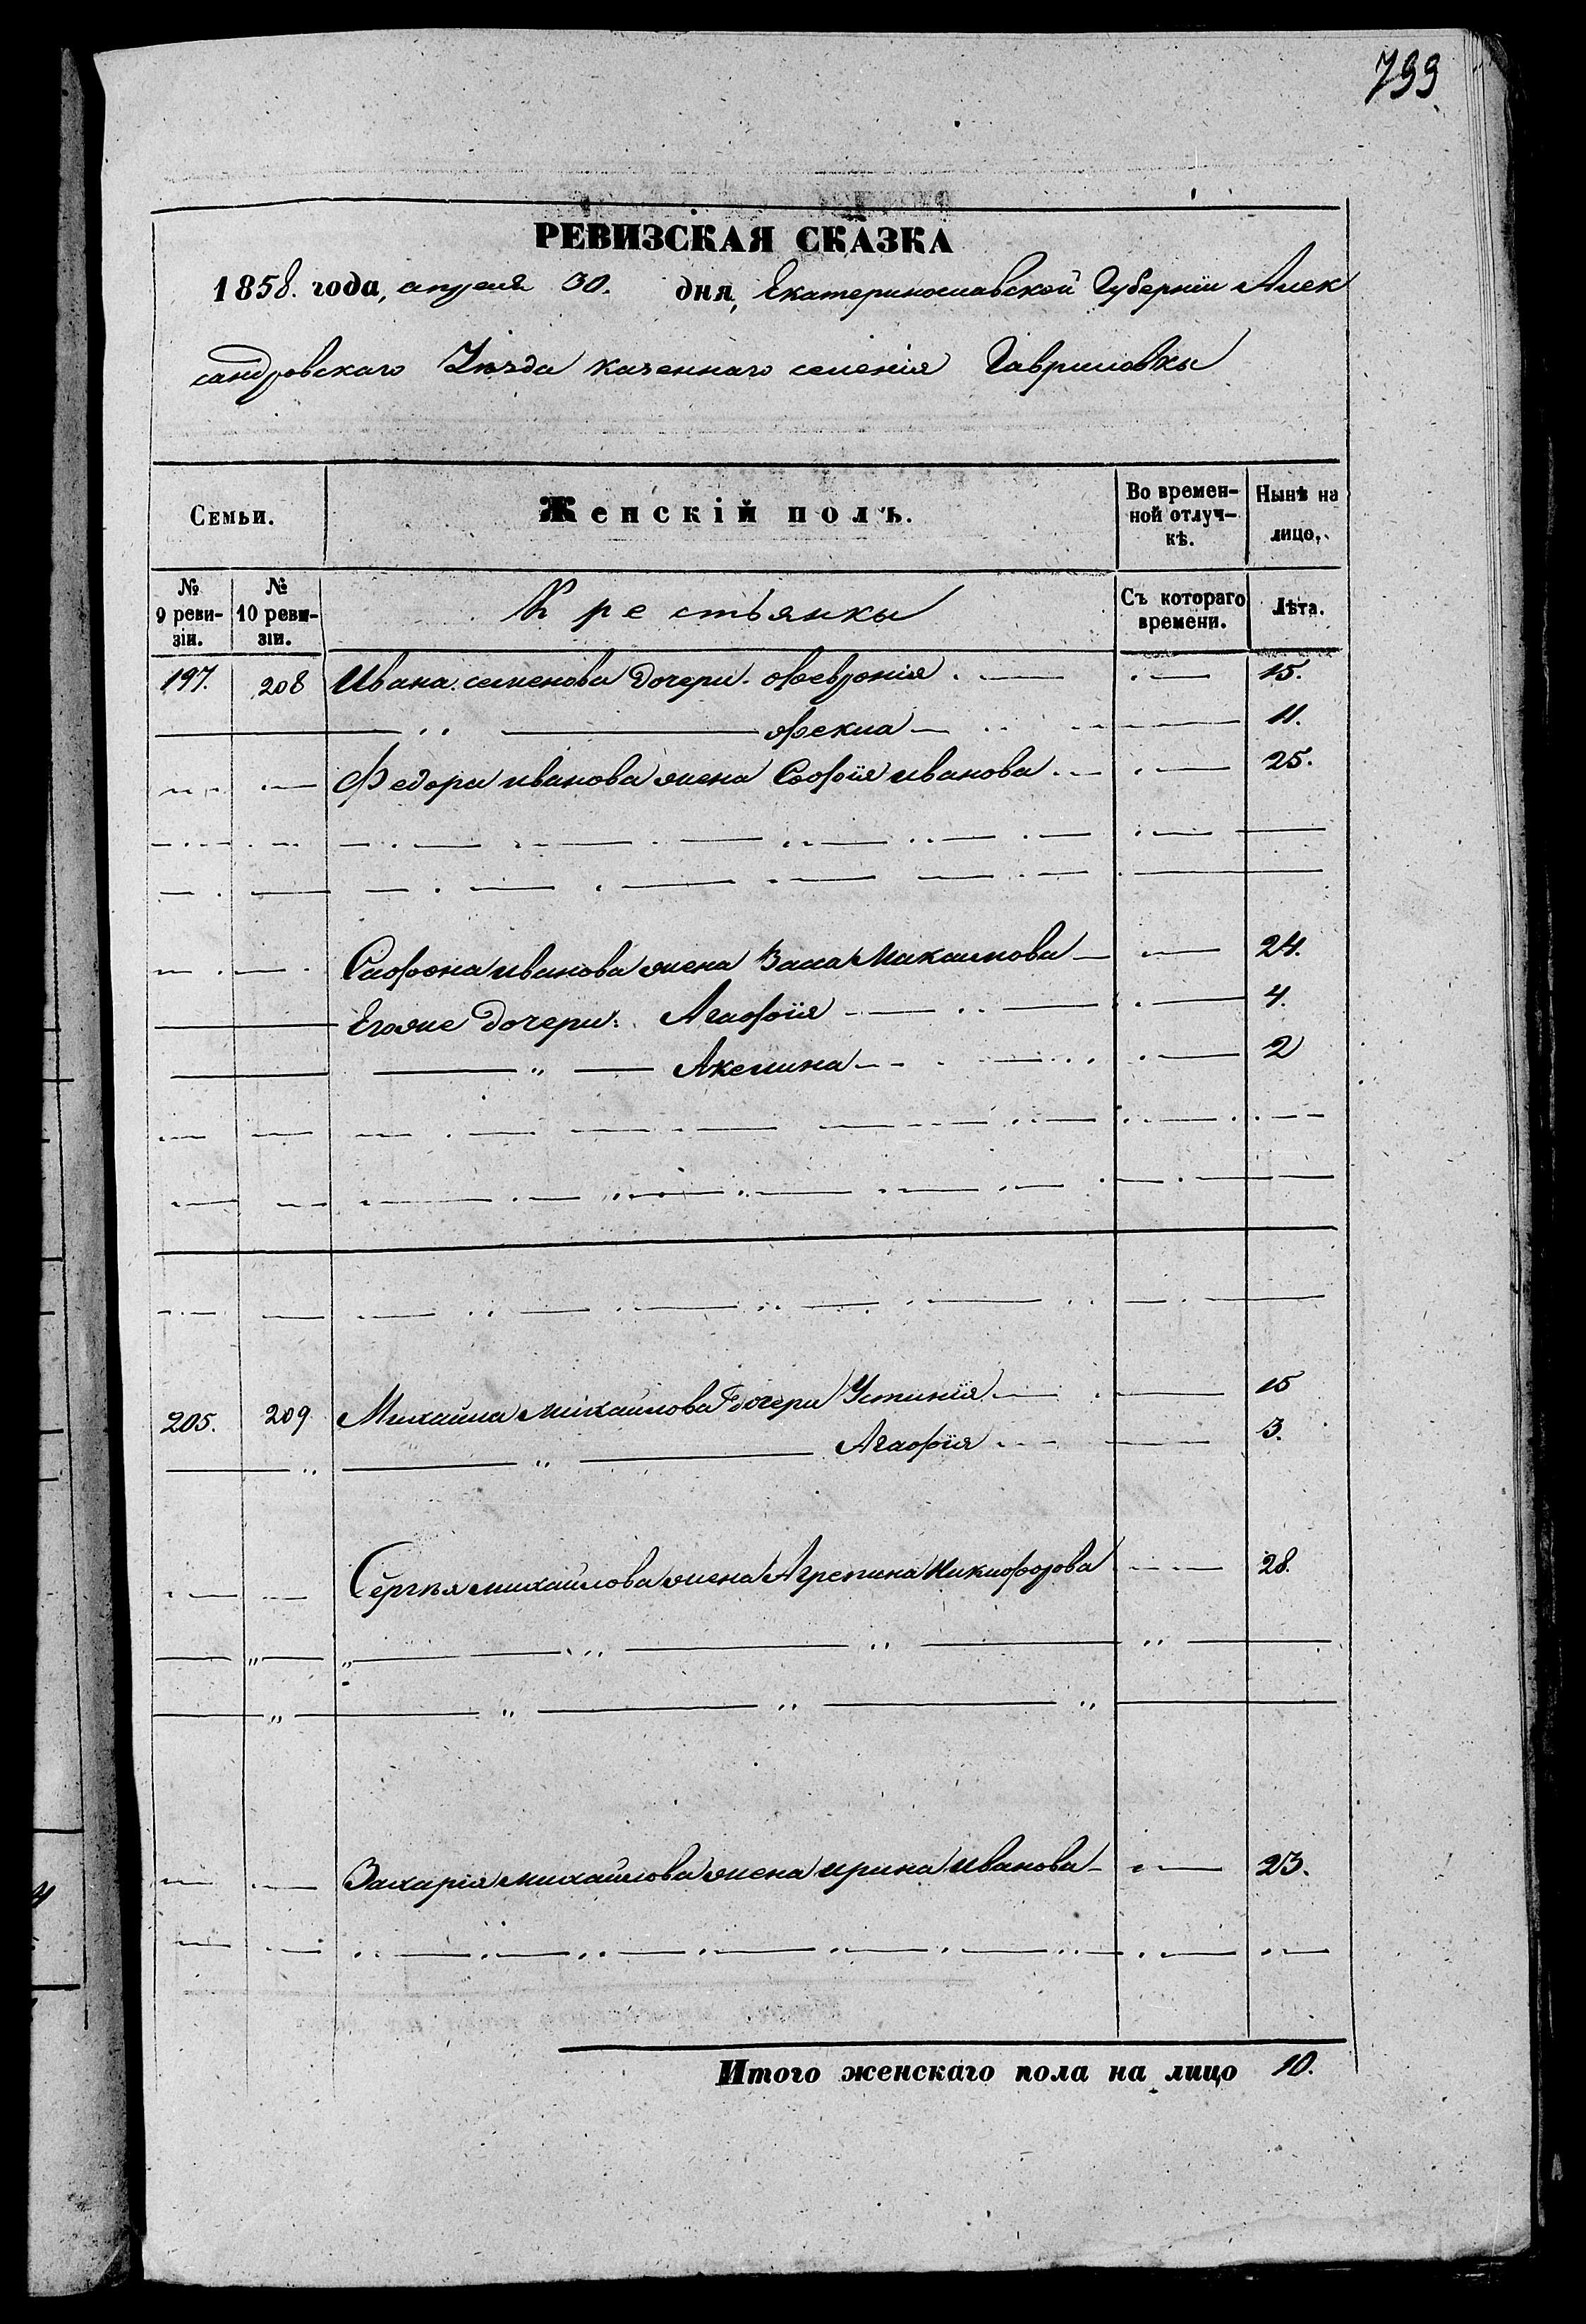 799
РЕВИЗСКАЯ СКАЗКА
1858. года, апреля 30. дня, Екатеринославской Губернiи Алек
сандровскаго Уѣзда казеннаго селенiя Гавриловки
Семьи.
Женскiй полъ.
Во времен-
ной отлуч-
кѣ.
Нынѣ на
лицо.
№
9 реви-
зiи.
№
10 реви-
зiи.
Крестьянки
Съ котораго
времени.
Лѣта.
197. 208 Ивана семенова дочери. Февронiя 15.
Фекла 11.
Федора иванова жена Софiя иванова 25.
Сафона иванова жена Макаимова 24.
Егоже дочери: Агафiя 4.
Акелина 2
205. 209 Михаила михайлова дочери Устинiя 15
Агафiя 3.
Сергѣя михайлова жена Агрепина Никифорова 28.
Захарiя михайлова жена ирина иванова 23.
Итого женскаго пола на лицо 10.